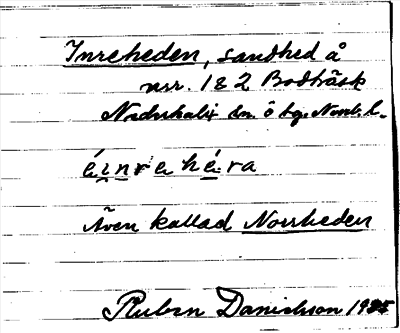 Inreheden, sandhed å
nsr. 1 & 2 Bodträsk
Nederkalix sn. ö bg. Norrb. l.
éi̯nrehéra
Även kallad Norrheden
Ruben Danielsson 1935